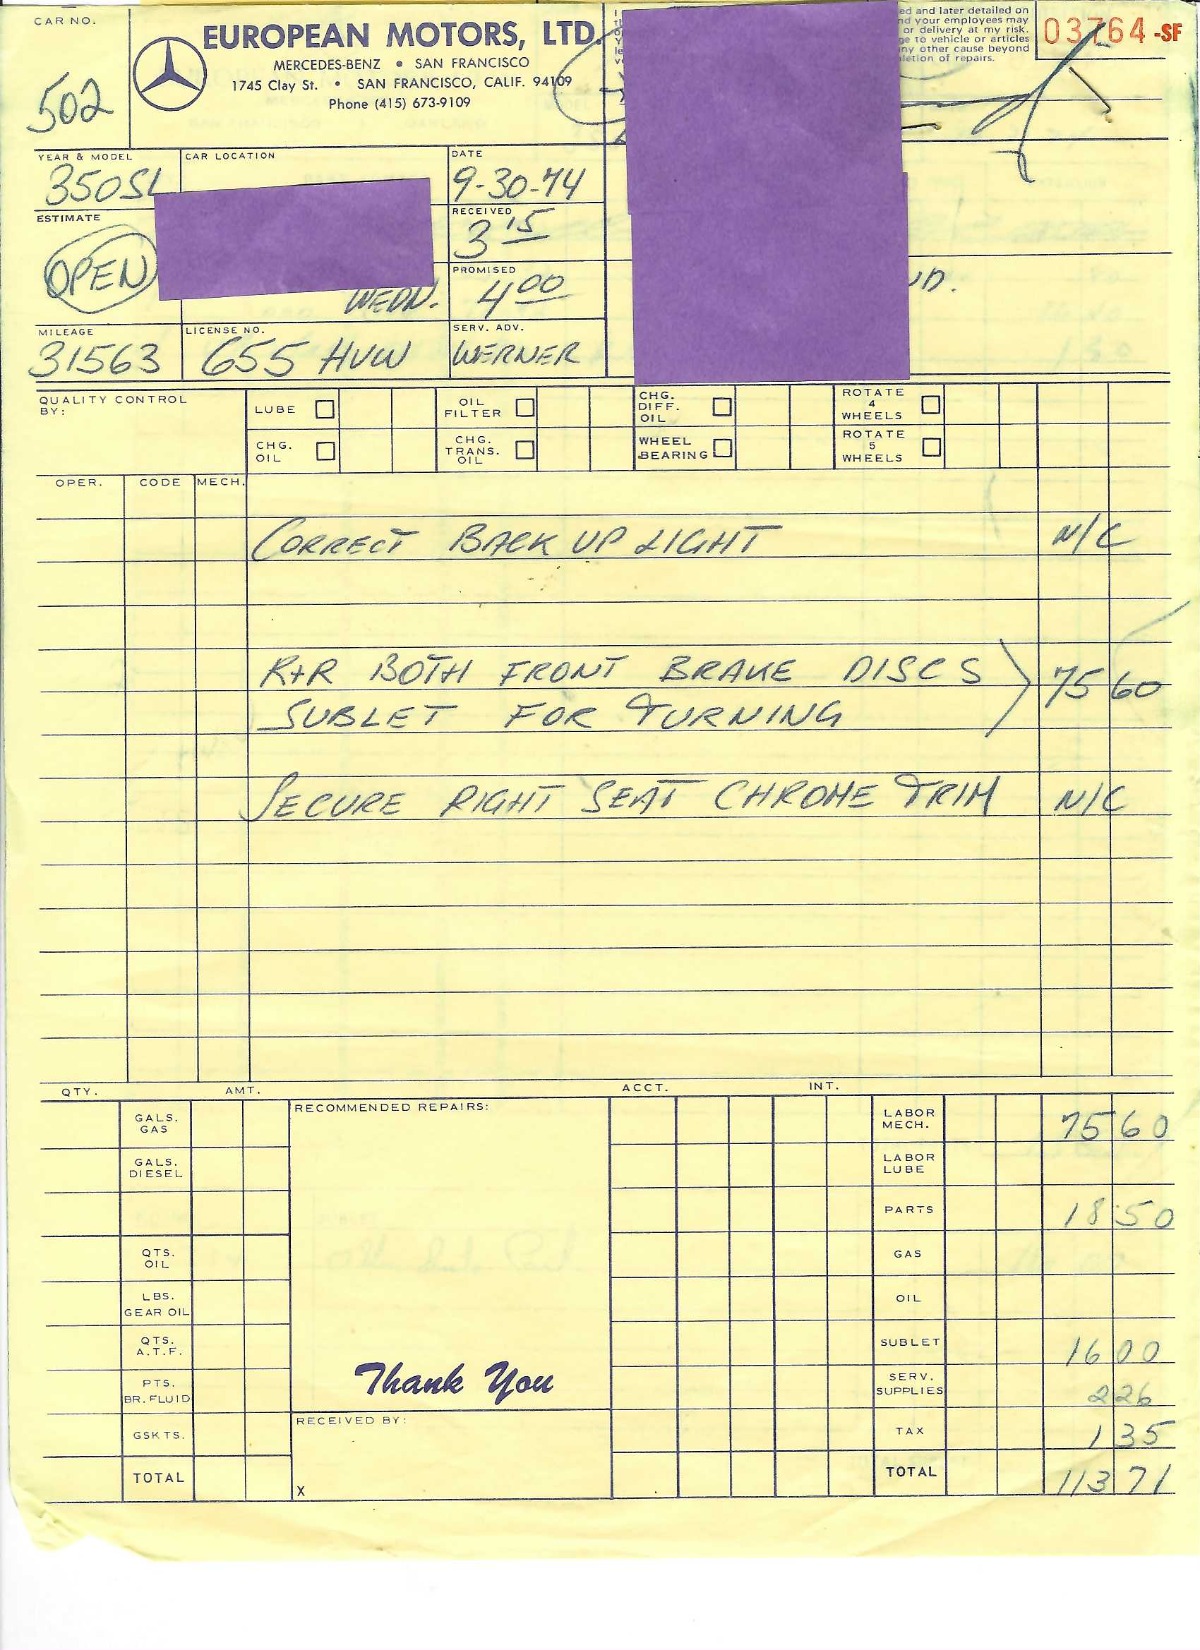 CAR NO.
502
EUROPEAN MOTORS, LTD.
MERCEDES-BENZ • SAN FRANCISCO
1745 Clay St. • SAN FRANCISCO, CALIF. 94109
Phone (415) 673-9109
ed and later detailed on
nd your employees may
or delivery at my risk.
ge to vehicle or articles
ny other cause beyond
letion of repairs.
03764-SF
YEAR & MODEL
350SL
CAR LOCATION
DATE
9-30-74
ESTIMATE
OPEN
RECEIVED
3 15
WEDN.
PROMISED
4 00
UD.
MILEAGE
31563
LICENSE NO.
655 HVW
SERV. ADV.
WERNER
QUALITY CONTROL
BY:
LUBE
OIL
FILTER
CHG.
DIFF.
OIL
ROTATE
4
WHEELS
CHG.
OIL
CHG.
TRANS.
OIL
WHEEL
BEARING
ROTATE
5
WHEELS
OPER. CODE MECH.
CORRECT BACK UP LIGHT N/C
R+R BOTH FRONT BRAKE DISCS
SUBLET FOR TURNING 75 60
SECURE RIGHT SEAT CHROME TRIM N/C
QTY. AMT. ACCT. INT.
GALS.
GAS
GALS.
DIESEL
QTS.
OIL
LBS.
GEAR OIL
QTS.
A.T.F.
PTS.
BR. FLUID
GSKTS.
TOTAL
RECOMMENDED REPAIRS:
Thank You
RECEIVED BY:
X
LABOR
MECH. 75 60
LABOR
LUBE
PARTS 18 50
GAS
OIL
SUBLET 16 00
SERV.
SUPPLIES 2 26
TAX 1 35
TOTAL 113 71